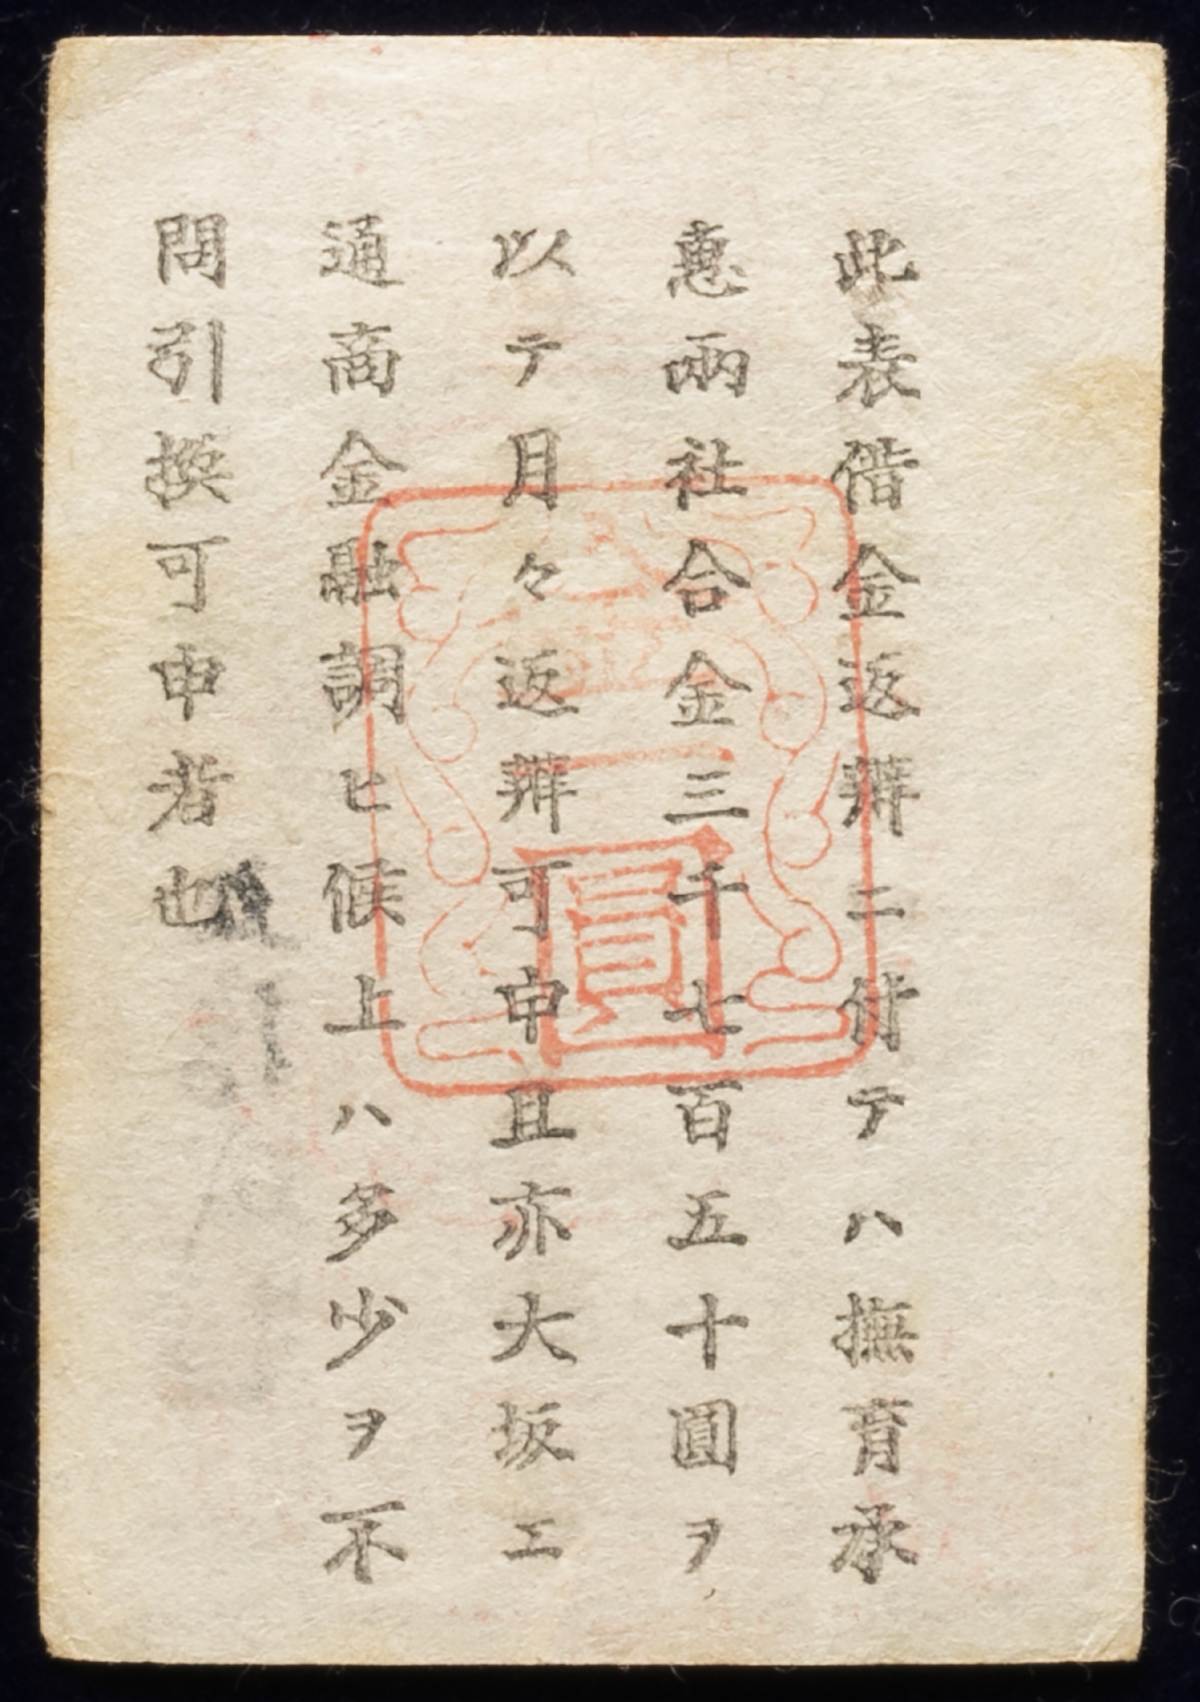 此表借金返辨ニ付テハ撫育承
惠兩社合金三千七百五十圓ヲ
以テ月々返辨可申且亦大坂エ
通商金融調ヒ候上ハ多少ヲ不
問引換可申者也
金一圓